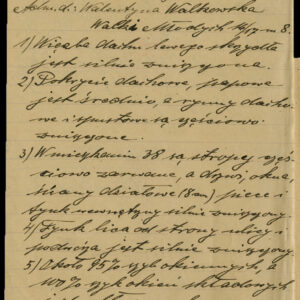 Adm. d.: Walentyna Walkowska
Walki Młodych 14/17 m 8.
1) Więźba dachu lewego skrzydła
jest silnie zniszczona.
2) Pokrycie dachowe, papowe
jest średnie, a rynny dacho-
we i spustowe są częściowo
zniszczone.
3) W mieszkaniu 38 są stropy częś-
ciowo zarwane, a drzwi, okna,
ściany działowe (8 m) piece i
tynk wewnętrzny silnie zniszczony.
4) Tynk lica od strony ulicy i
podwórza jest silnie zniszczony.
5) Około 45% szyb okiennych, a
szyb okien składowych